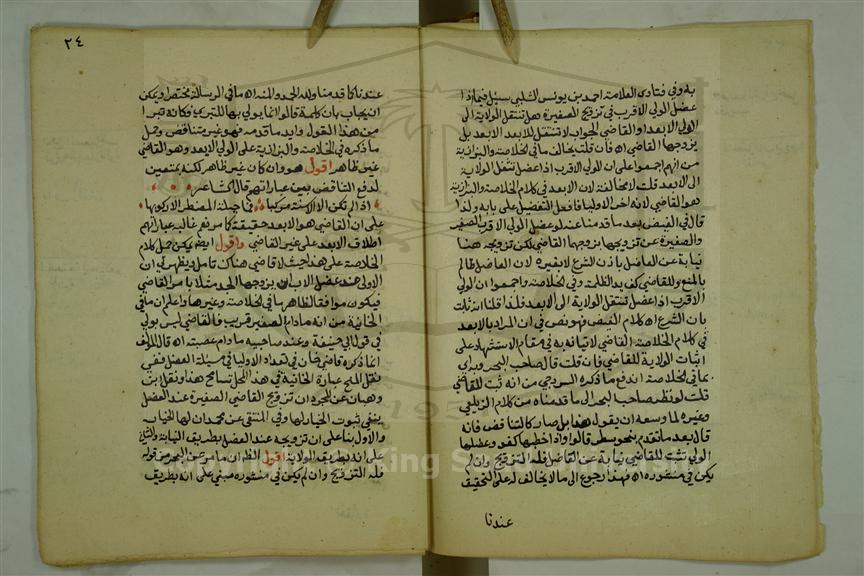 به وفي فتاوى العلامة احمد بن يونس الشلبي سئل فيما اذا
عضل الولي الاقرب في تزويج الصغيرة هل تنتقل الولاية الى
الولي الابعد او القاضي الجواب لا تنتقل للابعد الابعد بل
يزوجها القاضي اه فان قلت يخالف ما في الخلاصة والبزازية
من انهم اجمعوا على ان الولي الاقرب اذا عضل تنتقل الولاية
الى الابعد قلت لا مخالفة لان الابعد في كلام الخلاصة والبزازية
هو القاضي لانه اخر الاوليا فافعل التفضيل على بابه ولذا
قال في الفيض بعد ما قدمنا عنه لو عضل الولي الاقرب الصغير
والصغيرة عن تزويجها يزوجها القاضي لكن تزويجه هنا
نيابة عن العاضل باذن الشرع لا بغيره لان العاضل ظالم
بالمنع وللقاضي كف يد الظلمة وفي الخلاصة واجمعوا ان الولي
الاقرب اذا عضل تنتقل الولاية الى الابعد فلذا قلنا انه ثابت
باذن الشرع اه كلام الفيض فهو نص في ان المراد بالابعد
في كلام الخلاصة القاضي لاتيانه به في مقام الاستشهاد على
اثبات الولاية للقاضي فان قلت قال صاحب البحر وبدا
بما في الخلاصة اندفع ما ذكره السروجي من انه تثبت للقاضي
قلت لو نظر صاحب البحر الى ما قدمناه من كلام الزيلعي
وغيره لما وسعه ان يقول هذا بل صار كالتناقض فانه
قال بعد ما تقدم بنحو سطر قالوا واذا خطبها كفو وعضلها
الولي تثبت للقاضي نيابة عن العاضل فله التزويج وان لم
يكن في منشوره اه فهذا رجوع الى ما لا يخالف له على التحقيق
عندنا
٢٤
عندنا كما قدمنا ولله الحمد والمنة اه ما في الرسالة مختصرا ويمكن
ان يجاب بان كلمة قالوا انما يوتى بها للتبري فكانه تبرا
من هذا القول وايد ما قدمه فهو غير متناقض وحمل
ما ذكره في الخلاصة والبزازية على الولي الابعد وهو القاضي
غير ظاهر اقول هو وان كان غير ظاهر لكنه يتعين
لدفع التناقض بين عباراتهم قال الشاعر
اذا لم تكن الا الاسنة مركبا فما حيلة المضطر الا ركوبها
على ان القاضي هو الابعد حقيقة كما مر نعم غالب عباراتهم
اطلاق الابعد على غير القاضي واقول ايضا يمكن حمل كلام
الخلاصة على هذا حيث لا قاضي هناك تامل ويظهر لي ان
الاولى عند عضل الاب ان يزوجها الجد مثلا بامر القاضي
فيكون موافقا لظاهر ما في الخلاصة وغيرها واعلم ان ما في
الخانية من انه ما دام للصغير قريب فالقاضي ليس بولي
في قول ابي حنيفة وعند صاحبيه ما دام عصبته اه قال المؤلف
انما ذكره قاضي خان في تعداد الاوليا في مسئلة العضل ففي
نقل المنح عبارة الخانية في هذا المحل تسامح هذا ونقل ابن
وهبان عن المجرد ان تزويج القاضي الصغيرة عند العضل
ينفي ثبوت الخيار لها وفي المنتقى عن محمد ان لها الخيار
والاول بناء على ان تزويجه عند العضل بطريق النيابة والثاني
على انه بطريق الولاية اقول الظاهر ان ما مر عن البحر من قوله
فله التزويج وان لم يكن في منشوره مبني على انه بطريق